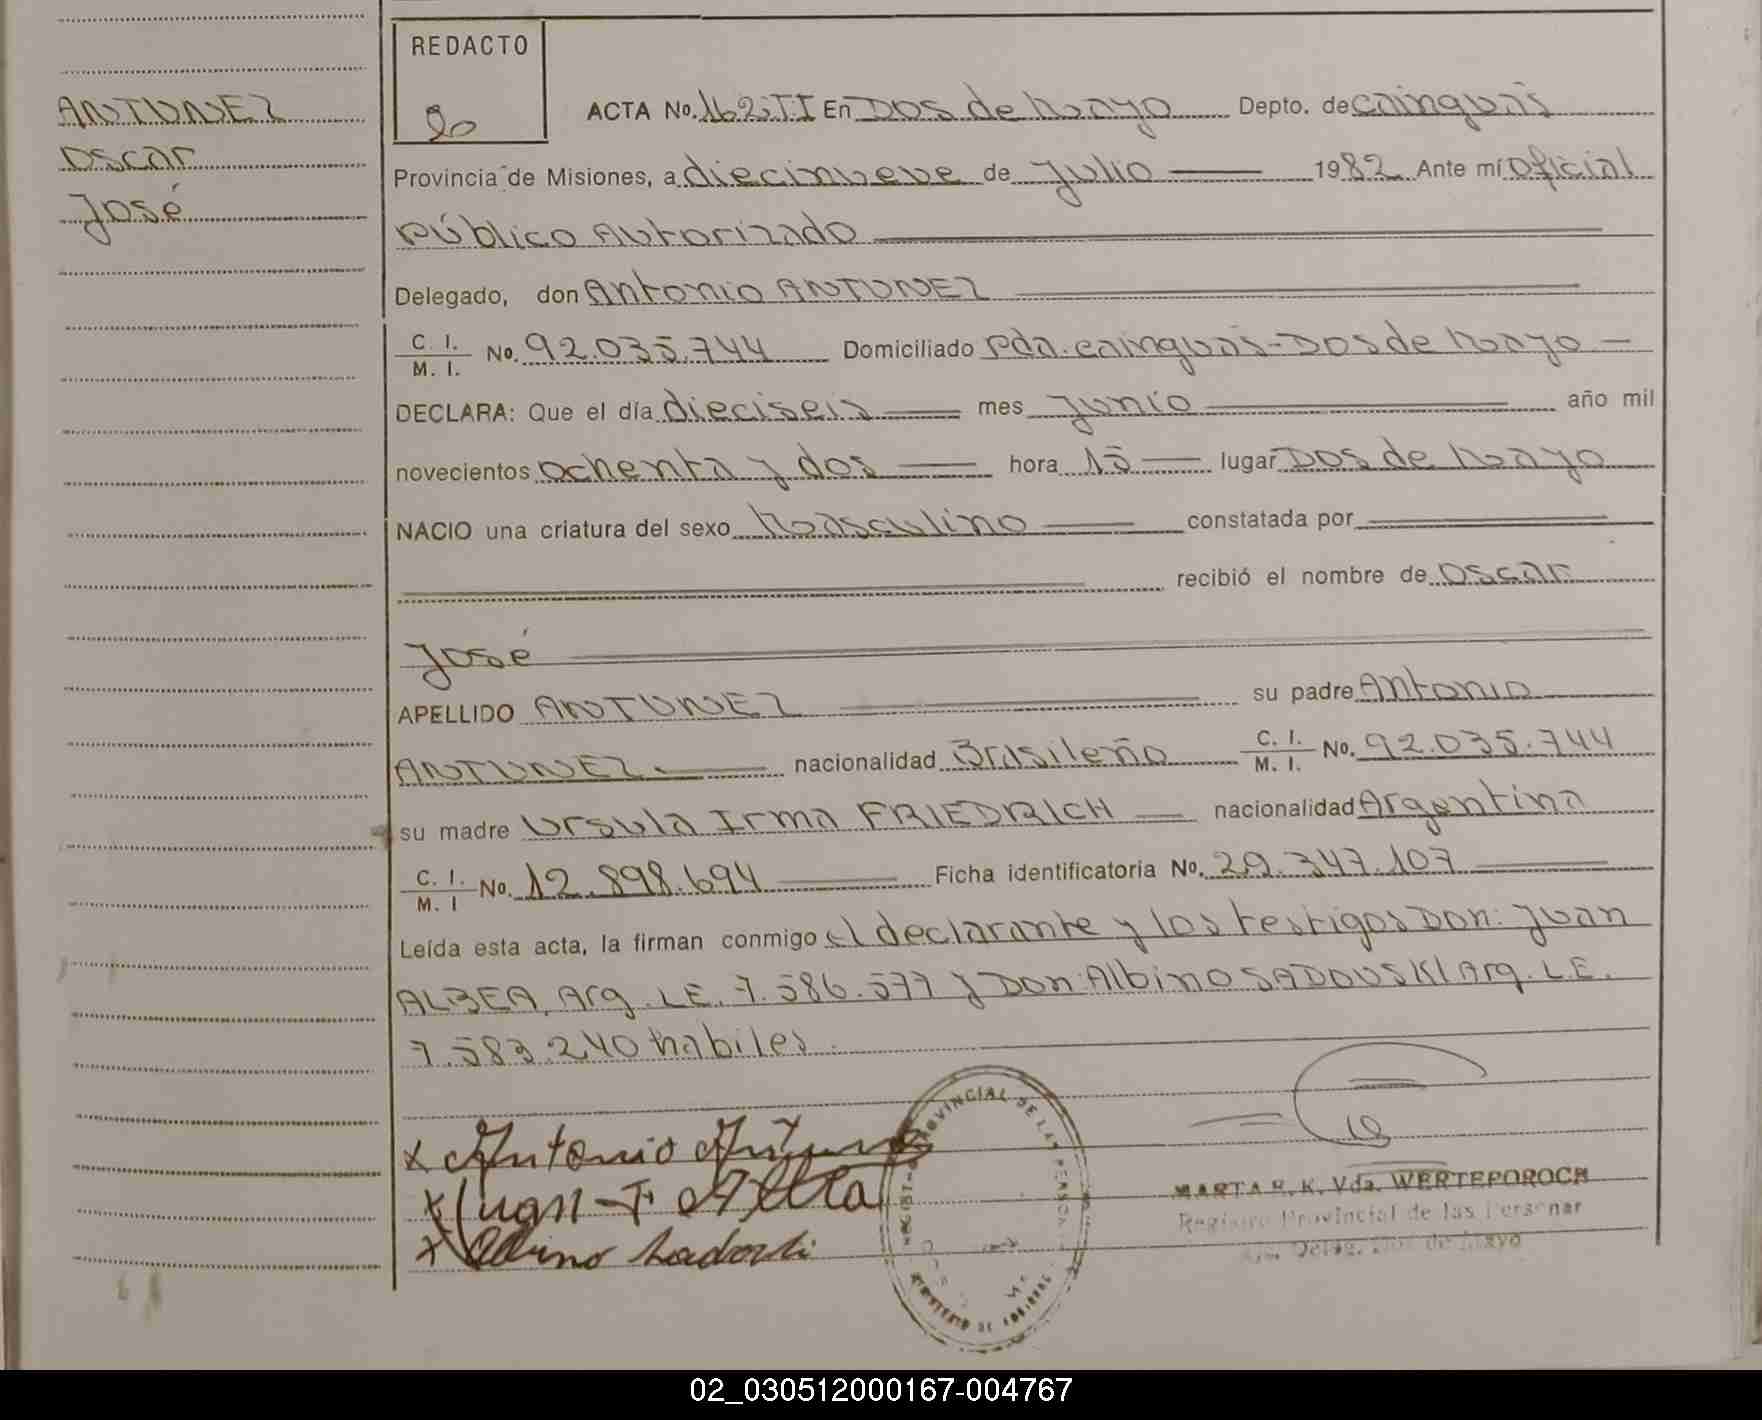 ANTUNEZ
Oscar
José
REDACTO
ACTA No. 162-TI En Dos de Mayo Depto. de Cainguás
Provincia de Misiones, a diecinueve de Julio 1982 Ante mí Oficial
Público Autorizado
Delegado, don Antonio ANTUNEZ
C. I.
M. I. No. 92.035.744 Domiciliado Pda. Cainguás-Dos de Mayo
DECLARA: Que el día dieciseis mes Junio año mil
novecientos ochenta y dos hora 15 lugar Dos de Mayo
NACIO una criatura del sexo Masculino constatada por
recibió el nombre de Oscar
José
APELLIDO ANTUNEZ su padre Antonio
ANTUNEZ. nacionalidad Brasileño C. I.
M. I. No. 92.035.744
su madre Ursula Irma FRIEDRICH nacionalidad Argentina
C. I.
M. I No. 12.898.694 Ficha identificatoria No. 29.347.107
Leída esta acta, la firman conmigo el declarante y los testigos Don: Juan
ALBEA, Arg. L.E. 7.586.577 y Don: Albino SADOUSKI Arg. L.E.
7.583.240 habiles.
x Antonio Antunez
x Juan
x Albino Sadouski
PROVINCIAL DE LAS PERSONAS
MARTA R. K. Vda. WERTEPOROCH
Registro Provincial de las Personas
Deleg. Dos de Mayo
02_030512000167-004767